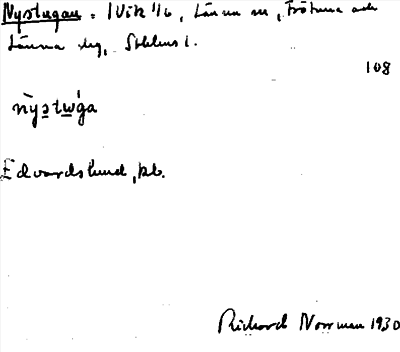 Nystugan. 1 Vik 1/16, Länna sn, Frötuna och
Länna slg, Sthlms l.
108
nỳstẃga
Edvardslund, pb.
Richard Norrman 1930